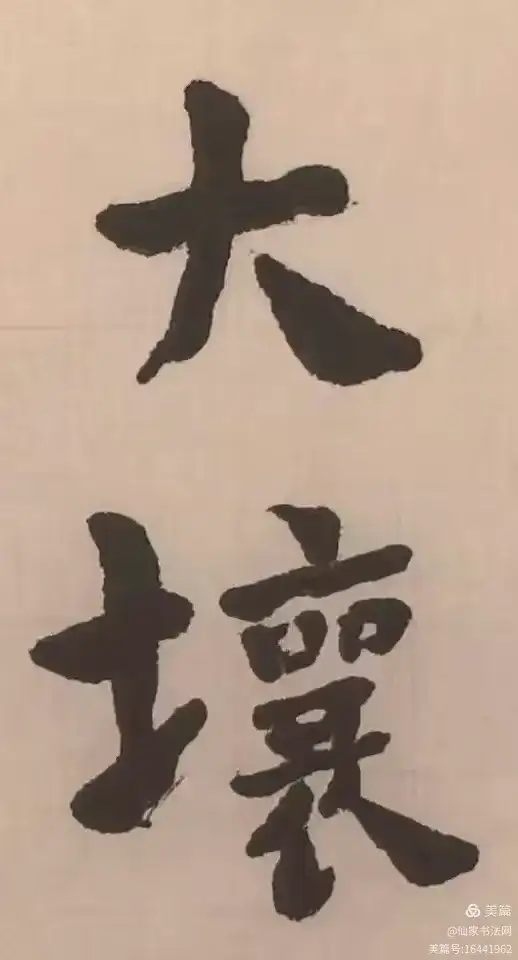 大
壤
美篇
@仙家书法网
美篇号:16441962